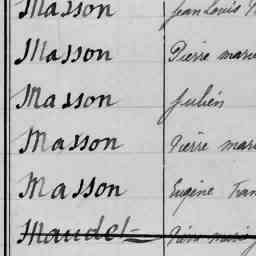 Masson Jean Louis
Masson Pierre marie
Masson Julien
Masson Pierre mari
Masson Eugène Fran
Maudet Pierre marie